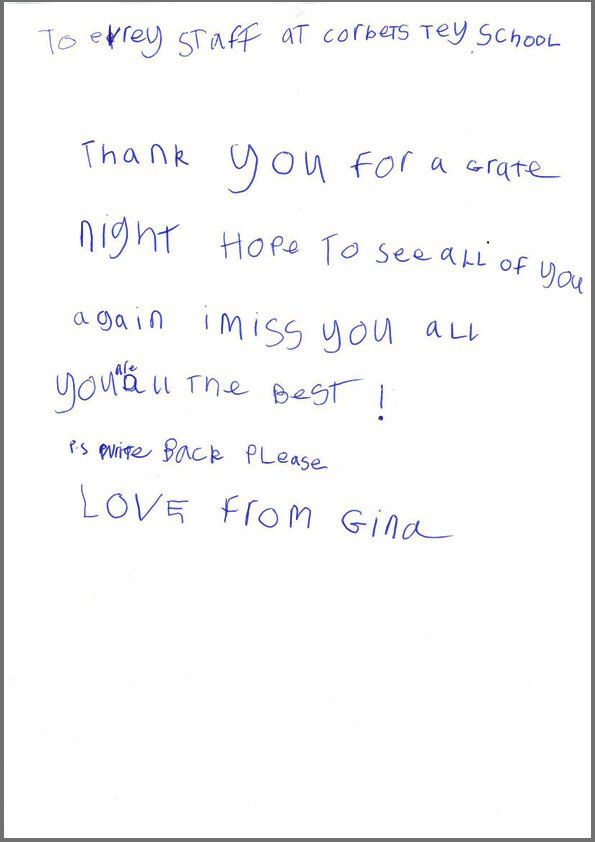 To evrey STAFF AT CORBETS TEY SCHOOL
Thank you For a Grate
night Hope To see aLL of you
again i MISS you aLL
you are all The BEST !
P.S write Back PLease
LOVE From Gina